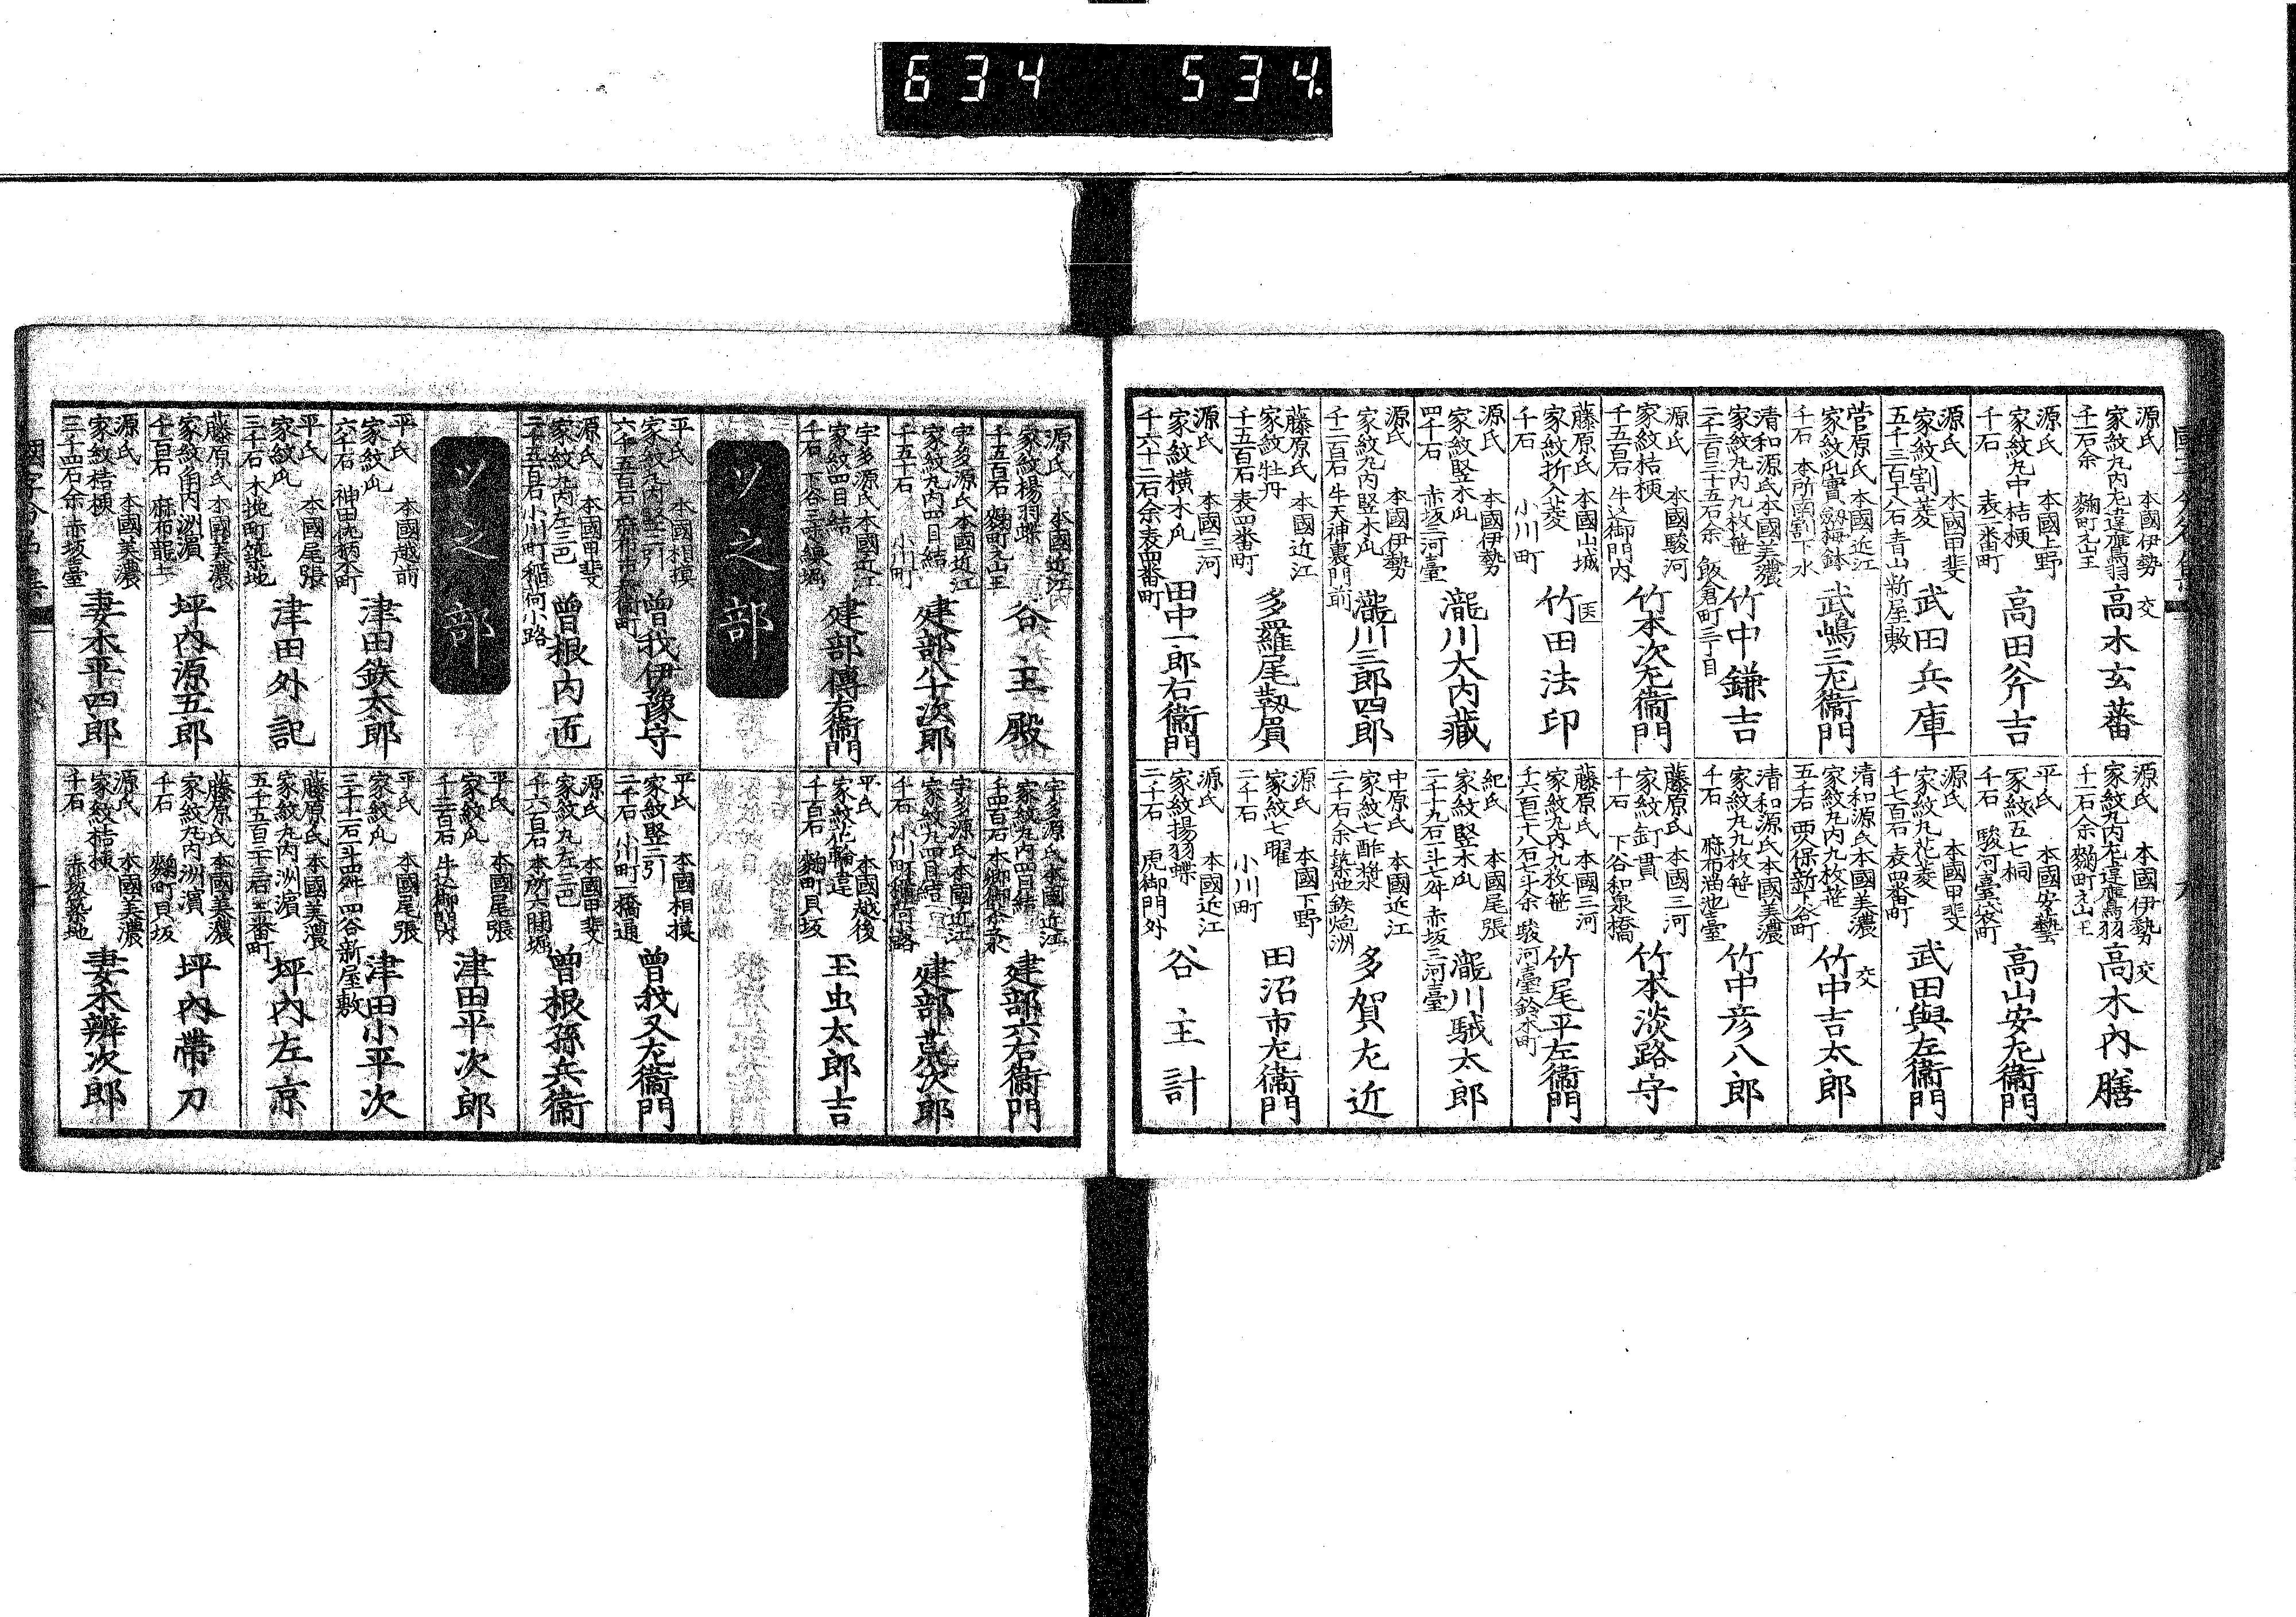 634 534.
源氏 本國伊勢
家紋丸内左違鷹羽
千石余 麹町元山王
交
高木玄蕃
源氏 本國上野
家紋丸中桔梗
千石 表二番町
高田斧吉
源氏 本國甲斐
家紋割菱
五千三百八石 青山新屋敷
武田兵庫
菅原氏 本國近江
千石 本所南割下水
武嶋三左衞門
清和源氏 本國美濃
家紋丸内九枚笹
二千二百三十五石余 飯倉町三丁目
竹中鎌吉
源氏 本國駿河
家紋桔梗
千五百石 牛込御門内
竹本次左衞門
藤原氏 本國山城
家紋折入菱
千石 小川町
医
竹田法印
源氏 本國伊勢
家紋竪木丸
四千石 赤坂三河臺
瀧川大内藏
源氏 本國伊勢
家紋丸内竪木丸
千二百石 牛天神裏門前
瀧川三郎四郎
藤原氏 本國近江
家紋牡丹
千五百石 表四番町
多羅尾靱負
源氏 本國三河
家紋横木丸
千六十二石余 表四番町
田中一郎右衞門
源氏 本國伊勢
家紋丸内左違鷹羽
千石余 麹町元山王
交
高木内膳
平氏 本國安藝
家紋五七桐
千石 駿河臺袋町
高山安左衞門
源氏 本國甲斐
家紋丸花菱
千七百石 表四番町
武田與左衞門
清和源氏 本國美濃
家紋丸内九枚笹
五千石 西久保新下谷町
交
竹中吉太郎
清和源氏 本國美濃
家紋丸九枚笹
千石 麻布溜池臺
竹中彦八郎
藤原氏 本國三河
家紋釘貫
千石 下谷和泉橋
竹本淡路守
藤原氏 本國三河
家紋丸内九枚笹
千六百七十八石七斗余 駿河臺鈴木町
竹尾平左衞門
紀氏 本國尾張
家紋竪木丸
二千十九石二斗七舛 赤坂三河臺
瀧川駥太郎
中原氏 本國近江
家紋七酢漿
二千石余 築地鉄炮洲
多賀左近
源氏 本國下野
家紋七曜
二千石 小川町
田沼市左衞門
源氏 本國近江
家紋揚羽蝶
二千石 虎御門外
谷主計
源氏 本國近江
家紋揚羽蝶
千五百石 麹町元山王
谷主殿
宇多源氏 本國近江
家紋丸内四目結
千五十石 小川町
建部八十次郎
宇多源氏 本國近江
家紋四目結
千石 下谷三味線堀
建部傳右衞門
ソ之部
平氏 本國相摸
家紋丸内竪二引
六千五百石
曽我伊豫守
源氏 本國甲斐
家紋丸内左三巴
二千五百石 小川町稲荷小路
曽根内匠
ツ之部
平氏 本國越前
家紋丸
六千石
津田鉄太郎
平氏 本國尾張
家紋丸
三千石 木挽町築地
津田外記
藤原氏 本國美濃
家紋角内洲濵
千百石 麻布龍土
坪内源五郎
源氏 本國美濃
家紋桔梗
三千四石余 赤坂臺
妻木平四郎
宇多源氏 本國近江
家紋丸内四目結
千四百石
建部六右衞門
宇多源氏 本國近江
家紋丸四目結
千石 小川町稲荷小路
平氏 本國越後
家紋花輪違
千百石 麹町貝坂
玉虫太郎吉
平氏 本國相摸
家紋竪二引
二千石 小川町一橋通
曽我又左衞門
源氏 本國甲斐
家紋丸左三巴
千六百石 本所六間堀
曽根孫兵衞
平氏 本國尾張
家紋丸
千二百石 牛込御門内
津田平次郎
平氏 本國尾張
家紋丸
三千十二石一斗四舛 四谷新屋敷
津田小平次
藤原氏 本國美濃
家紋丸内洲濵
坪内左京
藤原氏 本國美濃
家紋丸内洲濵
千石 麹町貝坂
坪内帶刀
源氏 本國美濃
家紋桔梗
千石 赤坂築地
妻木辨次郎